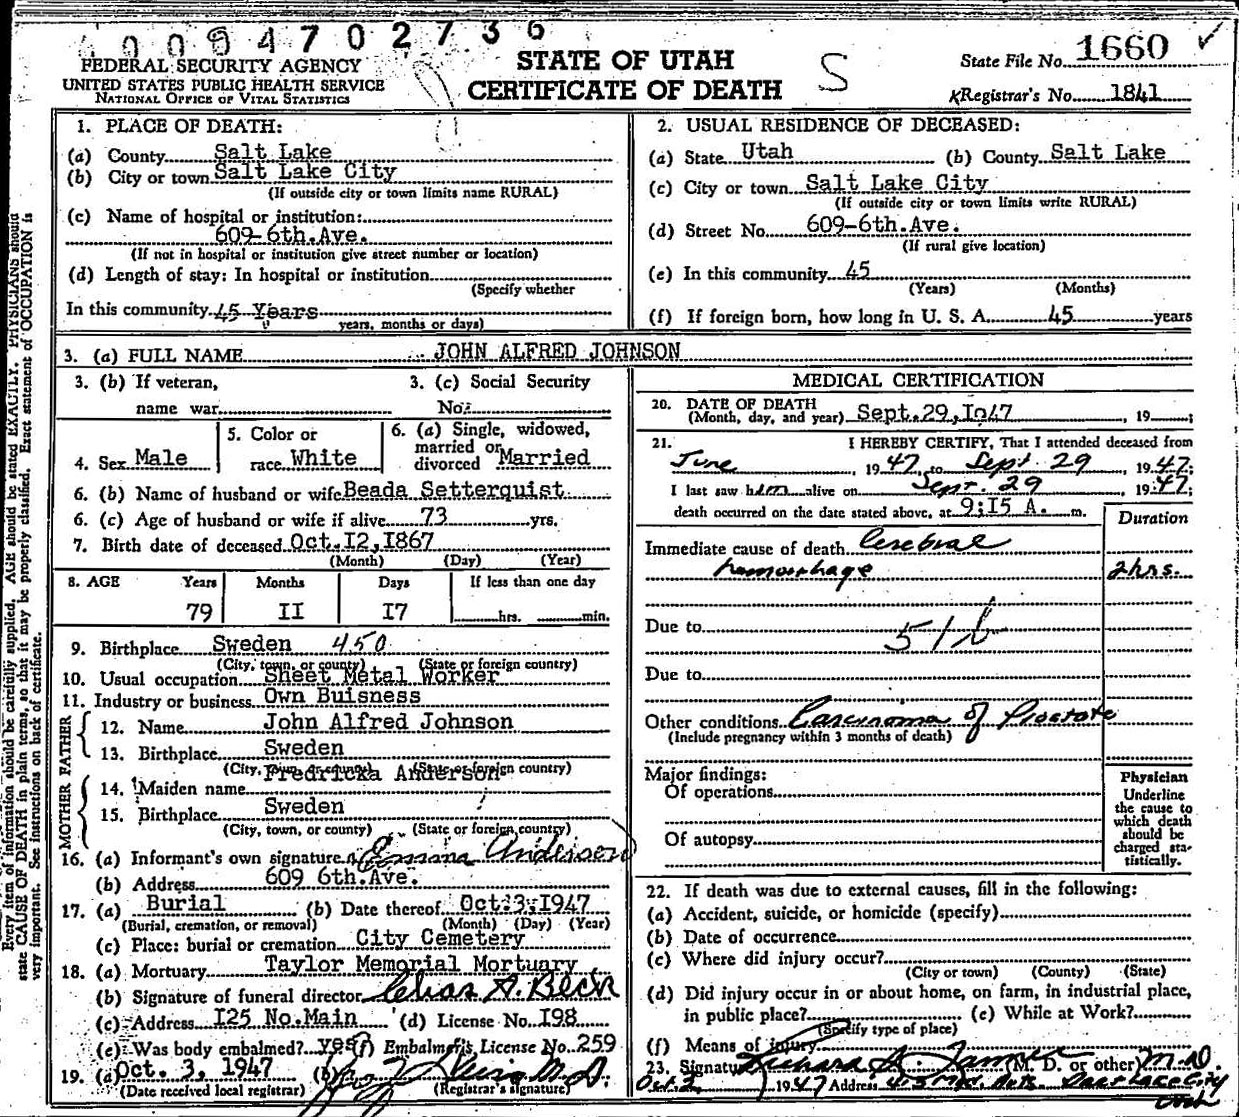 0004702736
FEDERAL SECURITY AGENCY
UNITED STATES PUBLIC HEALTH SERVICE
NATIONAL OFFICE OF VITAL STATISTICS
STATE OF UTAH
CERTIFICATE OF DEATH
S
State File No. 1660 ✓
Registrar's No. 1841
1. PLACE OF DEATH:
(a) County Salt Lake
(b) City or town Salt Lake City
(If outside city or town limits name RURAL)
(c) Name of hospital or institution:
609-6th.Ave.
(If not in hospital or institution give street number or location)
(d) Length of stay: In hospital or institution
(Specify whether
In this community 45 Years
years, months or days)
2. USUAL RESIDENCE OF DECEASED:
(a) State Utah (b) County Salt Lake
(c) City or town Salt Lake City
(If outside city or town limits write RURAL)
(d) Street No. 609-6th.Ave.
(If rural give location)
(e) In this community 45
(Years) (Months)
(f) If foreign born, how long in U. S. A. 45 years
3. (a) FULL NAME JOHN ALFRED JOHNSON
3. (b) If veteran, 3. (c) Social Security
name war No.
4. Sex Male
5. Color or
race White
6. (a) Single, widowed,
married or
divorced Married
6. (b) Name of husband or wife Beada Setterquist
6. (c) Age of husband or wife if alive 73 yrs.
7. Birth date of deceased Oct.I2,I867
(Month) (Day) (Year)
8. AGE Years Months Days If less than one day
79 II I7 hrs. min.
9. Birthplace Sweden 450
(City, town, or county) (State or foreign country)
10. Usual occupation Sheet Metal Worker
11. Industry or business Own Buisness
FATHER
12. Name John Alfred Johnson
13. Birthplace Sweden
(City, town, or county) (State or foreign country)
MOTHER
Fredricka Anderson
14. Maiden name
15. Birthplace Sweden
(City, town, or county) (State or foreign country)
16. (a) Informant's own signature Anderson
(b) Address 609 6th.Ave.
17. (a) Burial (b) Date thereof Oct.3,I947
(Burial, cremation, or removal) (Month) (Day) (Year)
(c) Place: burial or cremation City Cemetery
18. (a) Mortuary Taylor Memorial Mortuary
(b) Signature of funeral director A. Beck
(c) Address I25 No.Main (d) License No. I98
(e) Was body embalmed? yes (f) Embalmer's License No. 259
19. (a) Oct. 3, 1947 (b) M.D.
(Date received local registrar) (Registrar's signature)
MEDICAL CERTIFICATION
20. DATE OF DEATH
(Month, day, and year) Sept.29,I947, 19 ;
21. I HEREBY CERTIFY, That I attended deceased from
June, 1947, to Sept. 29 1947;
I last saw him alive on Sept. 29 1947;
death occurred on the date stated above, at 9:I5 A. m.
Duration
Immediate cause of death Cerebral
hemorrhage 2 hrs.
Due to
Due to
Other conditions Carcinoma of Prostate
(Include pregnancy within 3 months of death)
Major findings:
Of operations
Of autopsy
Physician
Underline
the cause to
which death
should be
charged sta-
tistically.
22. If death was due to external causes, fill in the following:
(a) Accident, suicide, or homicide (specify)
(b) Date of occurrence
(c) Where did injury occur?
(City or town) (County) (State)
(d) Did injury occur in or about home, on farm, in industrial place,
in public place? (e) While at Work?
(Specify type of place)
(f) Means of injury
23. Signature (M. D. or other) M.D.
Oct 2 1947 Address Salt Lake City
Utah
Every item of information should be carefully supplied. AGE should be stated EXACTLY. PHYSICIANS should
state CAUSE OF DEATH in plain terms, so that it may be properly classified. Exact statement of OCCUPATION is
very important. See instructions on back of certificate.